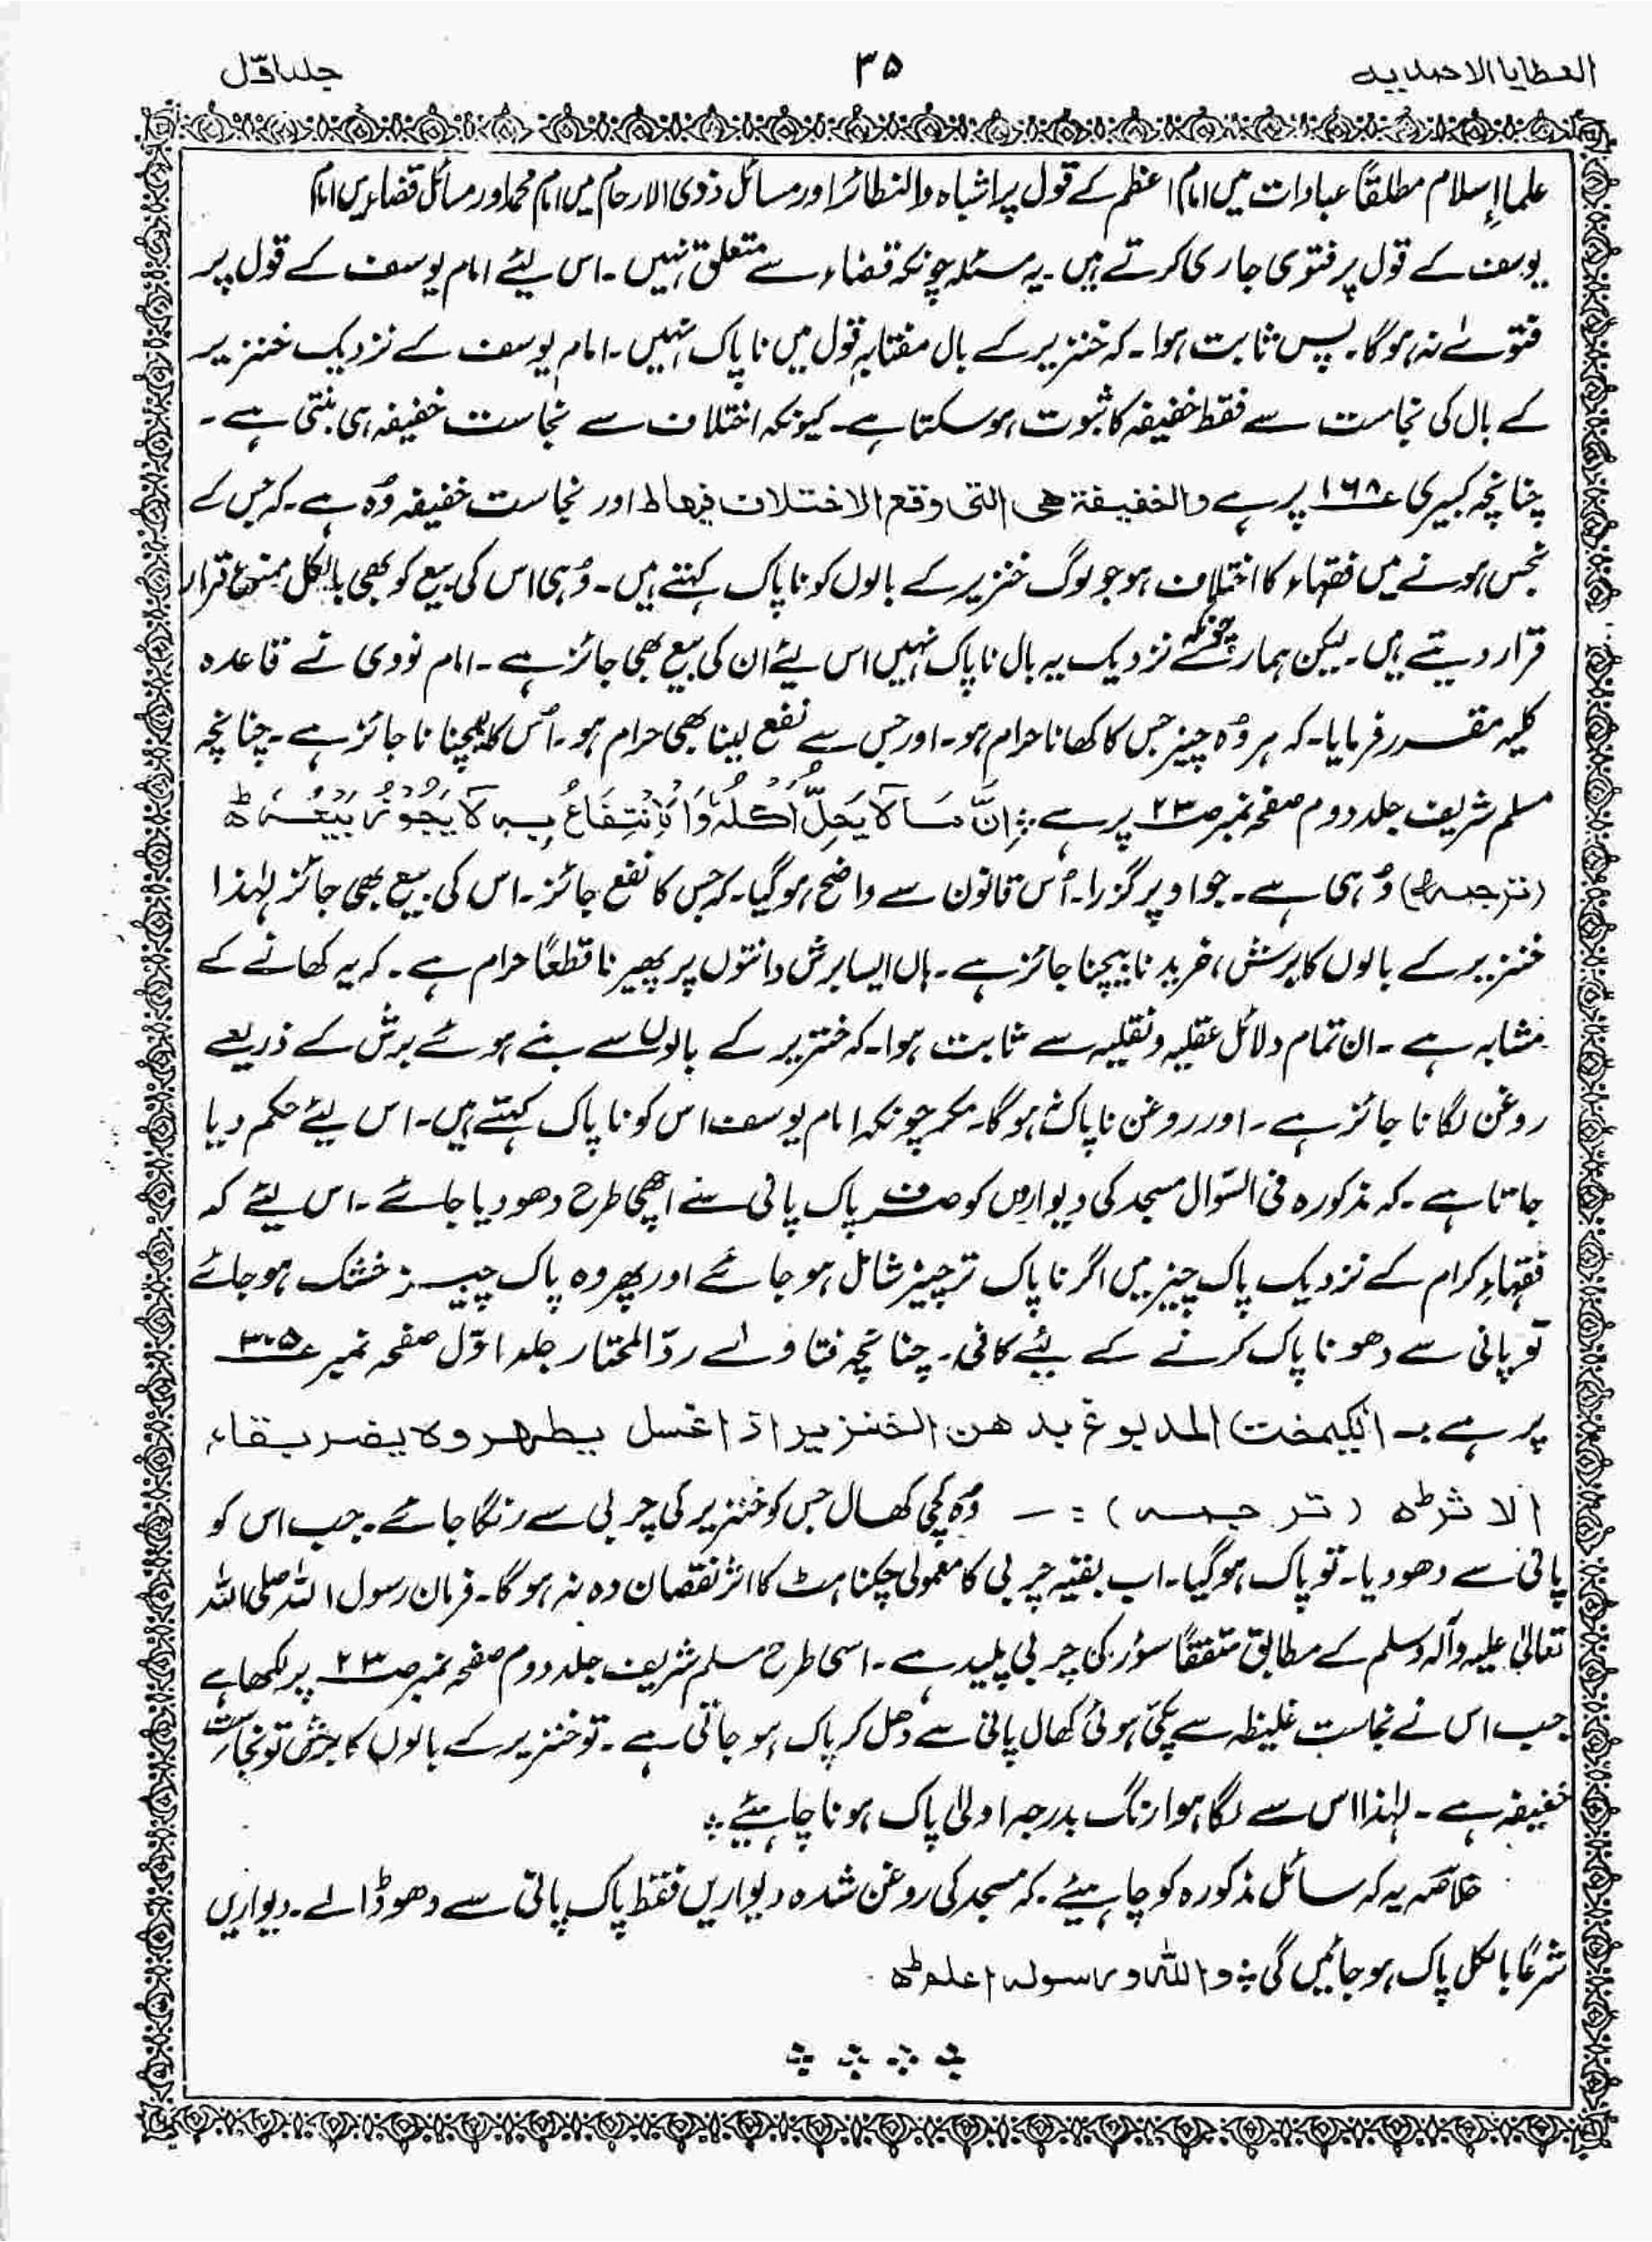 العطایا الاحمدیہ
۳۵
جلد اوّل
علماءِ اسلام مطلقاً عبادات میں امام اعظم کے قول پر اشباہ والنظائر اور مسائل ذوی الارحام میں امام محمد اور مسائل قضا میں امام
یوسف کے قول پر فتویٰ جاری کرتے ہیں۔ یہ مسئلہ چونکہ قضاء سے متعلق نہیں۔ اس لیئے امام یوسف کے قول پر
فتوےٰ نہ ہوگا۔ پس ثابت ہوا۔ کہ خنزیر کے بال مفتابہ قول میں ناپاک نہیں۔ امام یوسف کے نزدیک خنزیر
کے بال کی نجاست سے فقط خفیفہ کا ثبوت ہوسکتا ہے۔ کیونکہ اختلاف سے نجاست خفیفہ ہی بنتی ہے۔
چنانچہ کبیری ؏۱۶۸ پر ہے والخفیفۃ ھی التی وقع الاختلاف فیھا ط اور نجاست خفیفہ وُہ ہے۔ کہ جس کے
نجس ہونے میں فقہاء کا اختلاف ہو جو لوگ خنزیر کے بالوں کو ناپاک کہتے ہیں۔ وُہی اس کی بیع کو بھی بالکل ممنوع قرار
قرار دیتے ہیں۔ لیکن ہمارے چونکہ نزدیک یہ بال ناپاک نہیں اس لیئے ان کی بیع بھی جائز ہے۔ امام نووی نے قاعدہ
کلیہ مقرر فرمایا۔ کہ ہر وُہ چیز جس کا کھانا حرام ہو۔ اور جس سے نفع لینا بھی حرام ہو۔ اُس کا بیچنا ناجائز ہے۔ چنانچہ
مسلم شریف جلد دوم صفحہ نمبر صـ۲۳ پر ہے ؞ اِنَّ مَا لَا یَحِلُّ اَکْلُہٗ وَالْاِنْتِفَاعُ بِہٖ لَا یَجُوْزُ بَیْعُہٗ ط
(ترجمہ) وُہی ہے۔ جو اوپر گزرا۔ اُس قانون سے واضح ہوگیا۔ کہ جس کا نفع جائز۔ اس کی بیع بھی جائز لہٰذا
خنزیر کے بالوں کا برش، خریدنا بیچنا جائز ہے۔ ہاں ایسا برش دانتوں پر پھیرنا قطعًا حرام ہے۔ کہ یہ کھانے کے
مشابہ ہے۔ ان تمام دلائل عقلیہ و نقلیہ سے ثابت ہوا۔ کہ خنزیر کے بالوں سے بنے ہوئے برش کے ذریعے
روغن لگانا جائز ہے۔ اور روغن ناپاک نہ ہوگا۔ مگر چونکہ امام یوسف اس کو ناپاک کہتے ہیں۔ اس لیئے حکم دیا
جاتا ہے۔ کہ مذکورہ فی السّوال مسجد کی دیواروں کو صرف پاک پانی سے اچھی طرح دھو دیا جائے۔ اس لیئے کہ
فقہاءِ کرام کے نزدیک پاک چیز میں اگر ناپاک تر چیز شامل ہو جائے اور پھر وہ پاک چیز خشک ہو جائے
تو پانی سے دھونا پاک کرنے کے لیئے کافی۔ چنانچہ فتاوٰے ردّ المختار جلد اوّل صفحہ نمبر ؏۳۰۵
پر ہے ہـ الکیمخت المدبوغ بدھن الخنزیر اذا غسل یطھر وہ یضر بقاء
الاثر ط (ترجمہ) :۔ وُہ کچی کھال جس کو خنزیر کی چربی سے رنگا جائے۔ جب اس کو
پانی سے دھو دیا۔ تو پاک ہوگیا۔ اب بقیہ چربی کا معمولی چکناہٹ کا اثر نقصان دہ نہ ہوگا۔ فرمان رسول اللہ صلی اللہ
تعالیٰ علیہ وآلہ وسلم کے مطابق متفقًا سؤر کی چربی پلید ہے۔ اسی طرح مسلم شریف جلد دوم صفحہ نمبر صـ۲۳ پر لکھا ہے
جب اس نے نجاست غلیظہ سے پکی ہوئی کھال پانی سے دھل کر پاک ہو جاتی ہے۔ تو خنزیر کے بالوں کا برش تو نجاست
خفیفہ ہے۔ لہٰذا اس سے لگا ہوا رنگ بدرجہ اولیٰ پاک ہونا چاہیئے ؞
خلاصہ یہ کہ سائل مذکورہ کو چاہیئے۔ کہ مسجد کی روغن شدہ دیواریں فقط پاک پانی سے دھو ڈالے۔ دیواریں
شرعًا بالکل پاک ہو جائیں گی ؞ واللہ و رسولہ اعلم ط